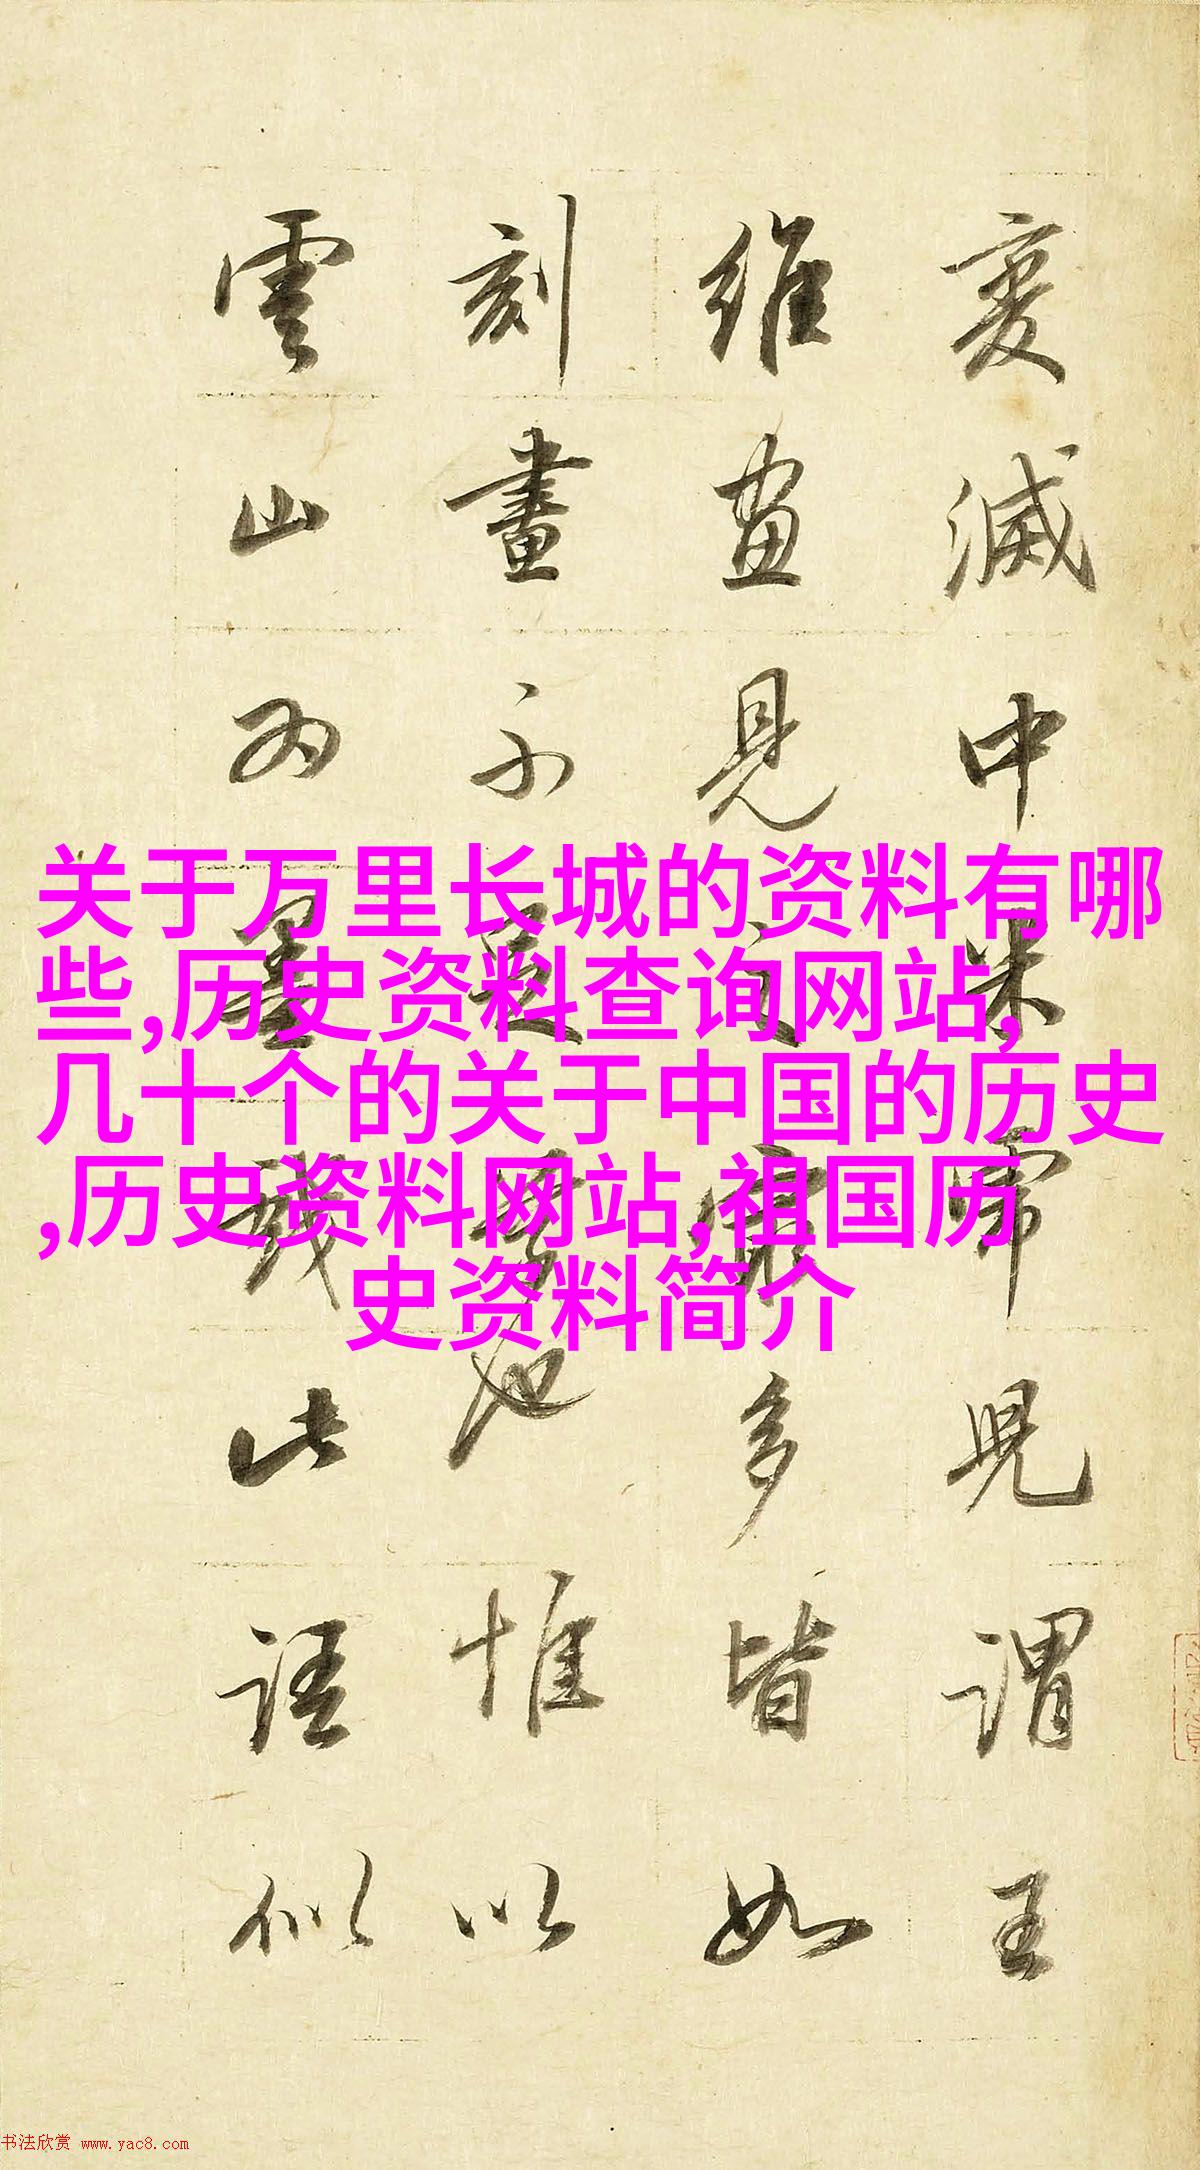 关于万里长城的资料有哪
些,历史资料查询网站,
几十个的关于中国的历史
,历史资料网站,祖国历
史资料简介
変滅中米常見謂王
維画見之最多皆如
刻畫不足學也惟以
雲山為墨戲此語似
书法欣赏 www.yac8.com